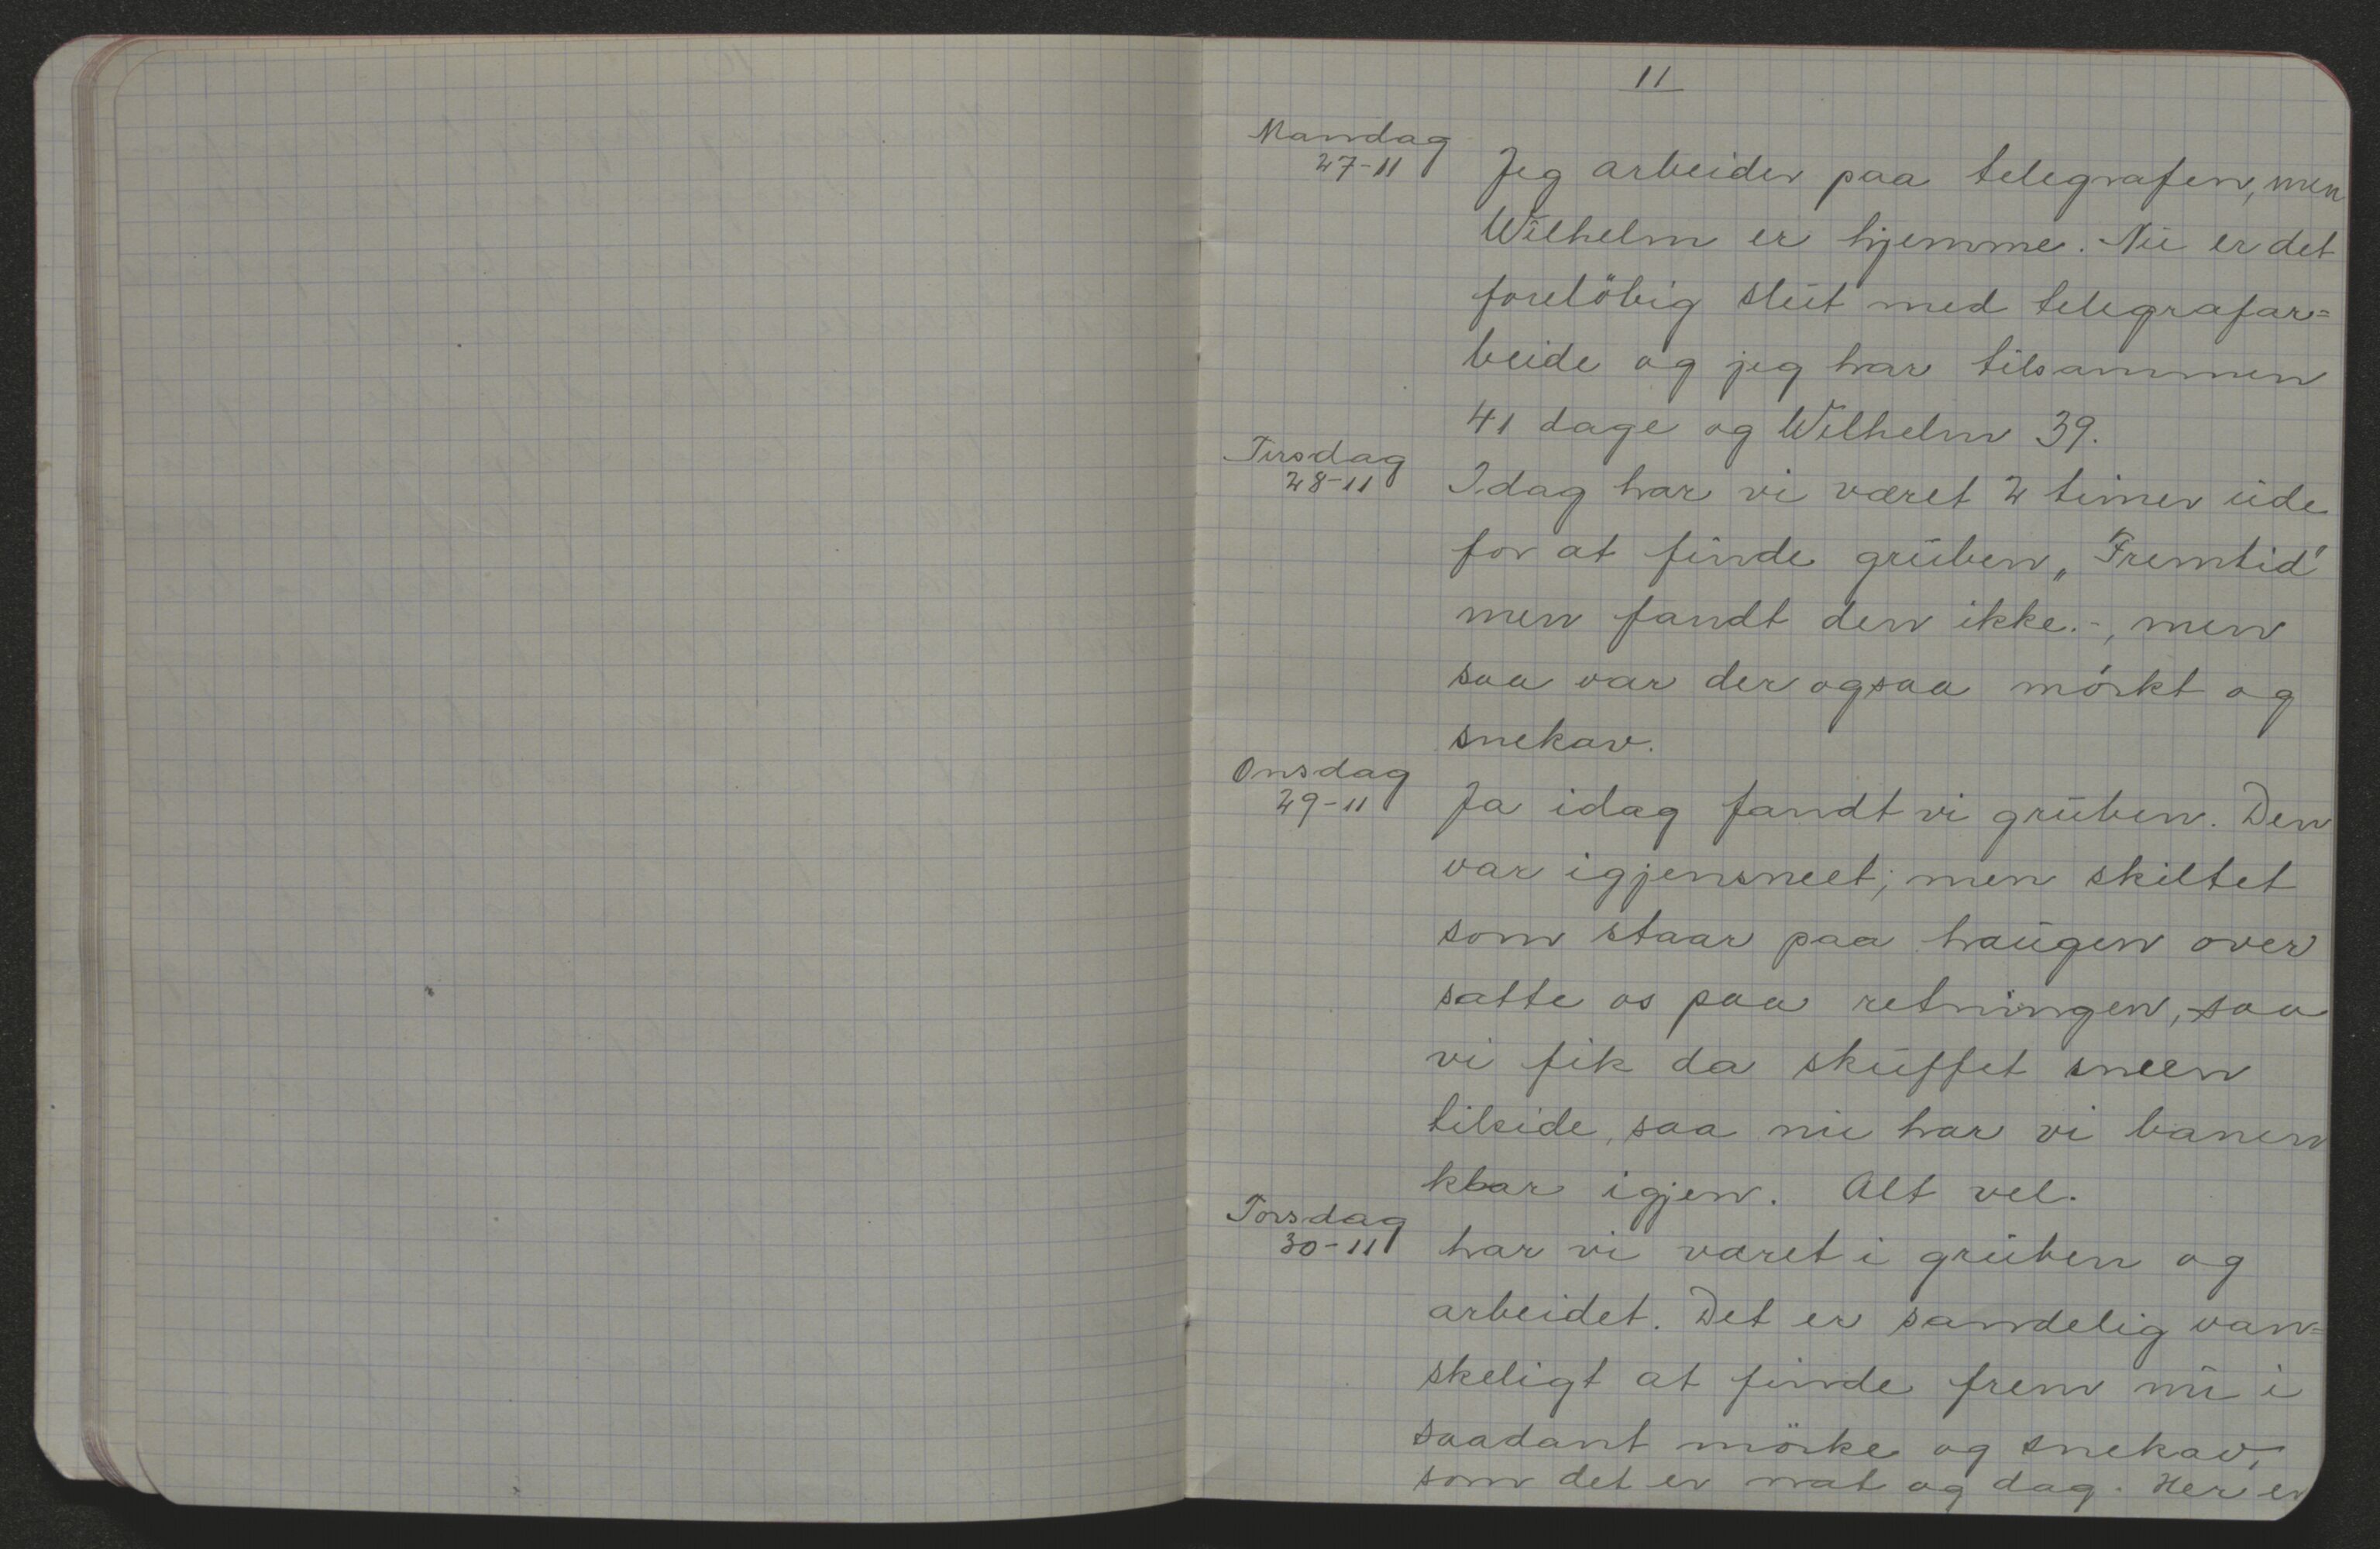 11
Mandag
27-11
Jeg arbeider paa telegrafen, men
Wilhelm er hjemme. Nu er det
foreløbig slut med telegrafar=
beide og jeg har tilsammen
41 dage og Wilhelm 39.
Tirsdag
28-11
Idag har vi været 2 timer ude
for at finde gruben „Fremtid"
men fandt den ikke.-, men
saa var der ogsaa mørkt og
snekav.
Onsdag
29-11
Ja idag fandt vi gruben. Den
var igjensneet; men skiltet
som staar paa haugen over
satte os paa retningen, saa
vi fik da skuffet sneen
tilside, saa nu har vi banen
klar igjen. Alt vel.
Torsdag
30-11
har vi været i gruben og
arbeidet. Det er sandelig van=
skeligt at finde frem nu i
saadant mörke og snekav,
som det er nat og dag. Her er